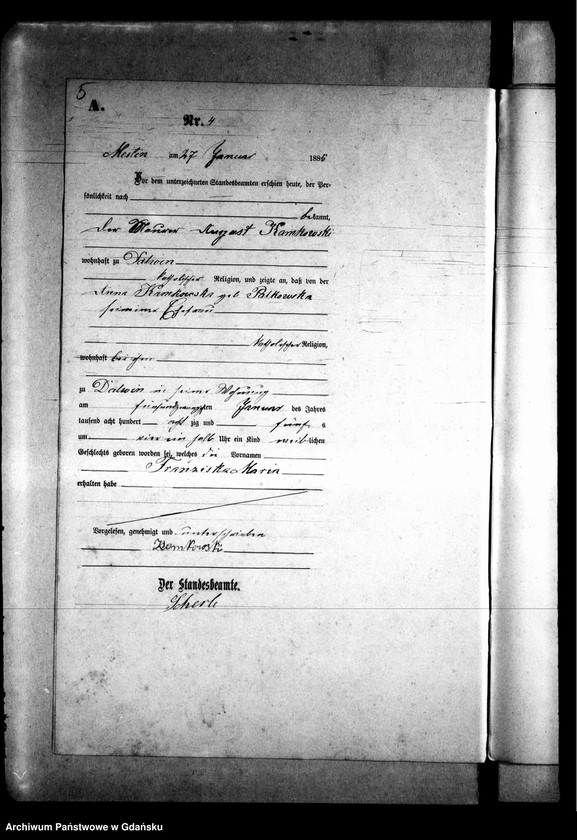 5
A.
Nr. 4
Mestin am 27 Januar 1885
Vor dem unterzeichneten Standesbeamten erschien heute, der Per-
sönlichkeit nach
bekannt,
der Maurer August Kamkowski
wohnhaft zu Dalwin
katholischer Religion, und zeigte an, daß von der
Anna Kamkowska geb. Palkowska
seiner Ehefrau
katholischer Religion,
wohnhaft bei ihm
zu Dalwin in seiner Wohnung
am fünfundzwanzigsten Januar des Jahres
tausend acht hundert acht zig und fünf
um vier ein halb Uhr ein Kind weiblichen
Geschlechts geboren worden sei, welches die Vornamen
Franziska Maria
erhalten habe
Vorgelesen, genehmigt und unterschrieben
Kamkowski
Der Standesbeamte.
Scherle
Archiwum Państwowe w Gdańsku